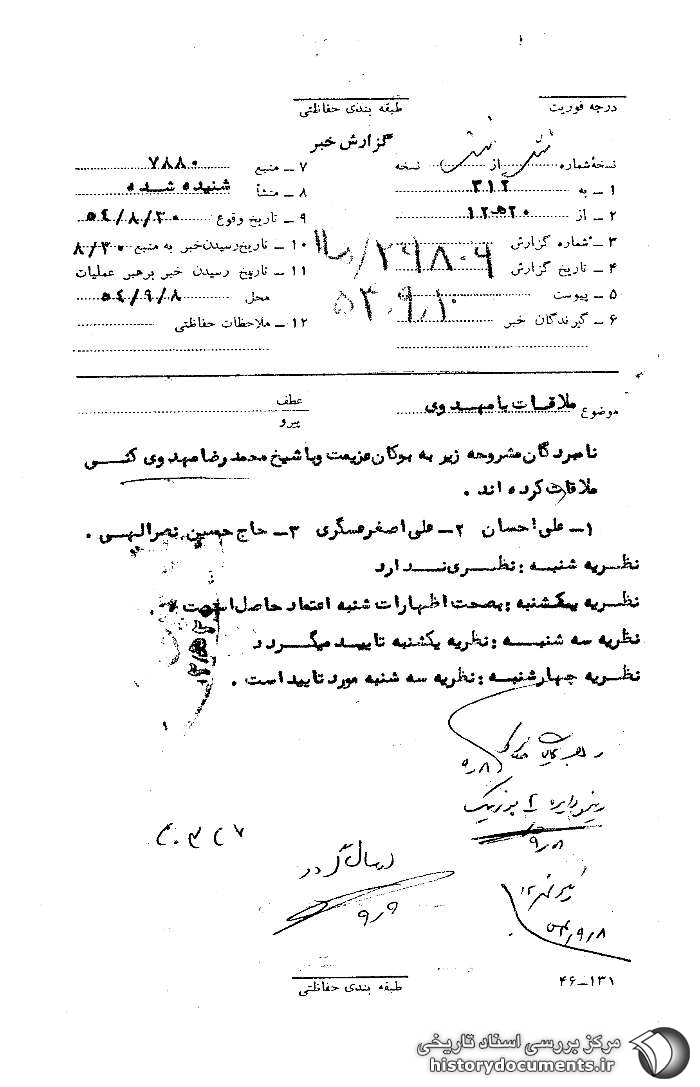 درجه فوریت
طبقه بندی حفاظتی
گزارش خبر
نسخهٔ شماره از نسخه
۱ ــ به ۳۱۲
۲ ــ از ۱۲ه۵۲۰
۳ ــ شماره گزارش ۲۹۸۰۶
۴ ــ تاریخ گزارش
۵ ــ پیوست
۶ ــ گیرندگان خبر
۷ ــ منبع ۷۸۸۰
۸ ــ منشأ شنیده شده
۹ ــ تاریخ وقوع ۵۴/۸/۲۰
۱۰ ــ تاریخ رسیدن خبر به منبع ۸/۳۰
۱۱ ــ تاریخ رسیدن خبر برهبر عملیات
محل ۵۴/۹/۸
۱۲ ــ ملاحظات حفاظتی
موضوع ملاقات با مهدوی
عطف
پیرو
نامبردگان مشروحه زیر به بوکان عزیمت و با شیخ محمد رضا مهدوی کنی
ملاقات کرده اند .
۱ــ علی احسان ۲ــ علی اصغر عسگری ۳ــ حاج حسین نصرالهی .
نظریه شنبه : نظری ندارد
نظریه یکشنبه : بصحت اظهارات شنبه اعتماد حاصل است .
نظریه سه شنبه : نظریه یکشنبه تایید میگردد
نظریه چهارشنبه : نظریه سه شنبه مورد تایید است .
۹/۸
۹/۸
ارسال گردد
۹/۹
۵۴/۹/۸
طبقه بندی حفاظتی
۴۶ــ۱۳۱
مرکز بررسی اسناد تاریخی
historydocuments.ir